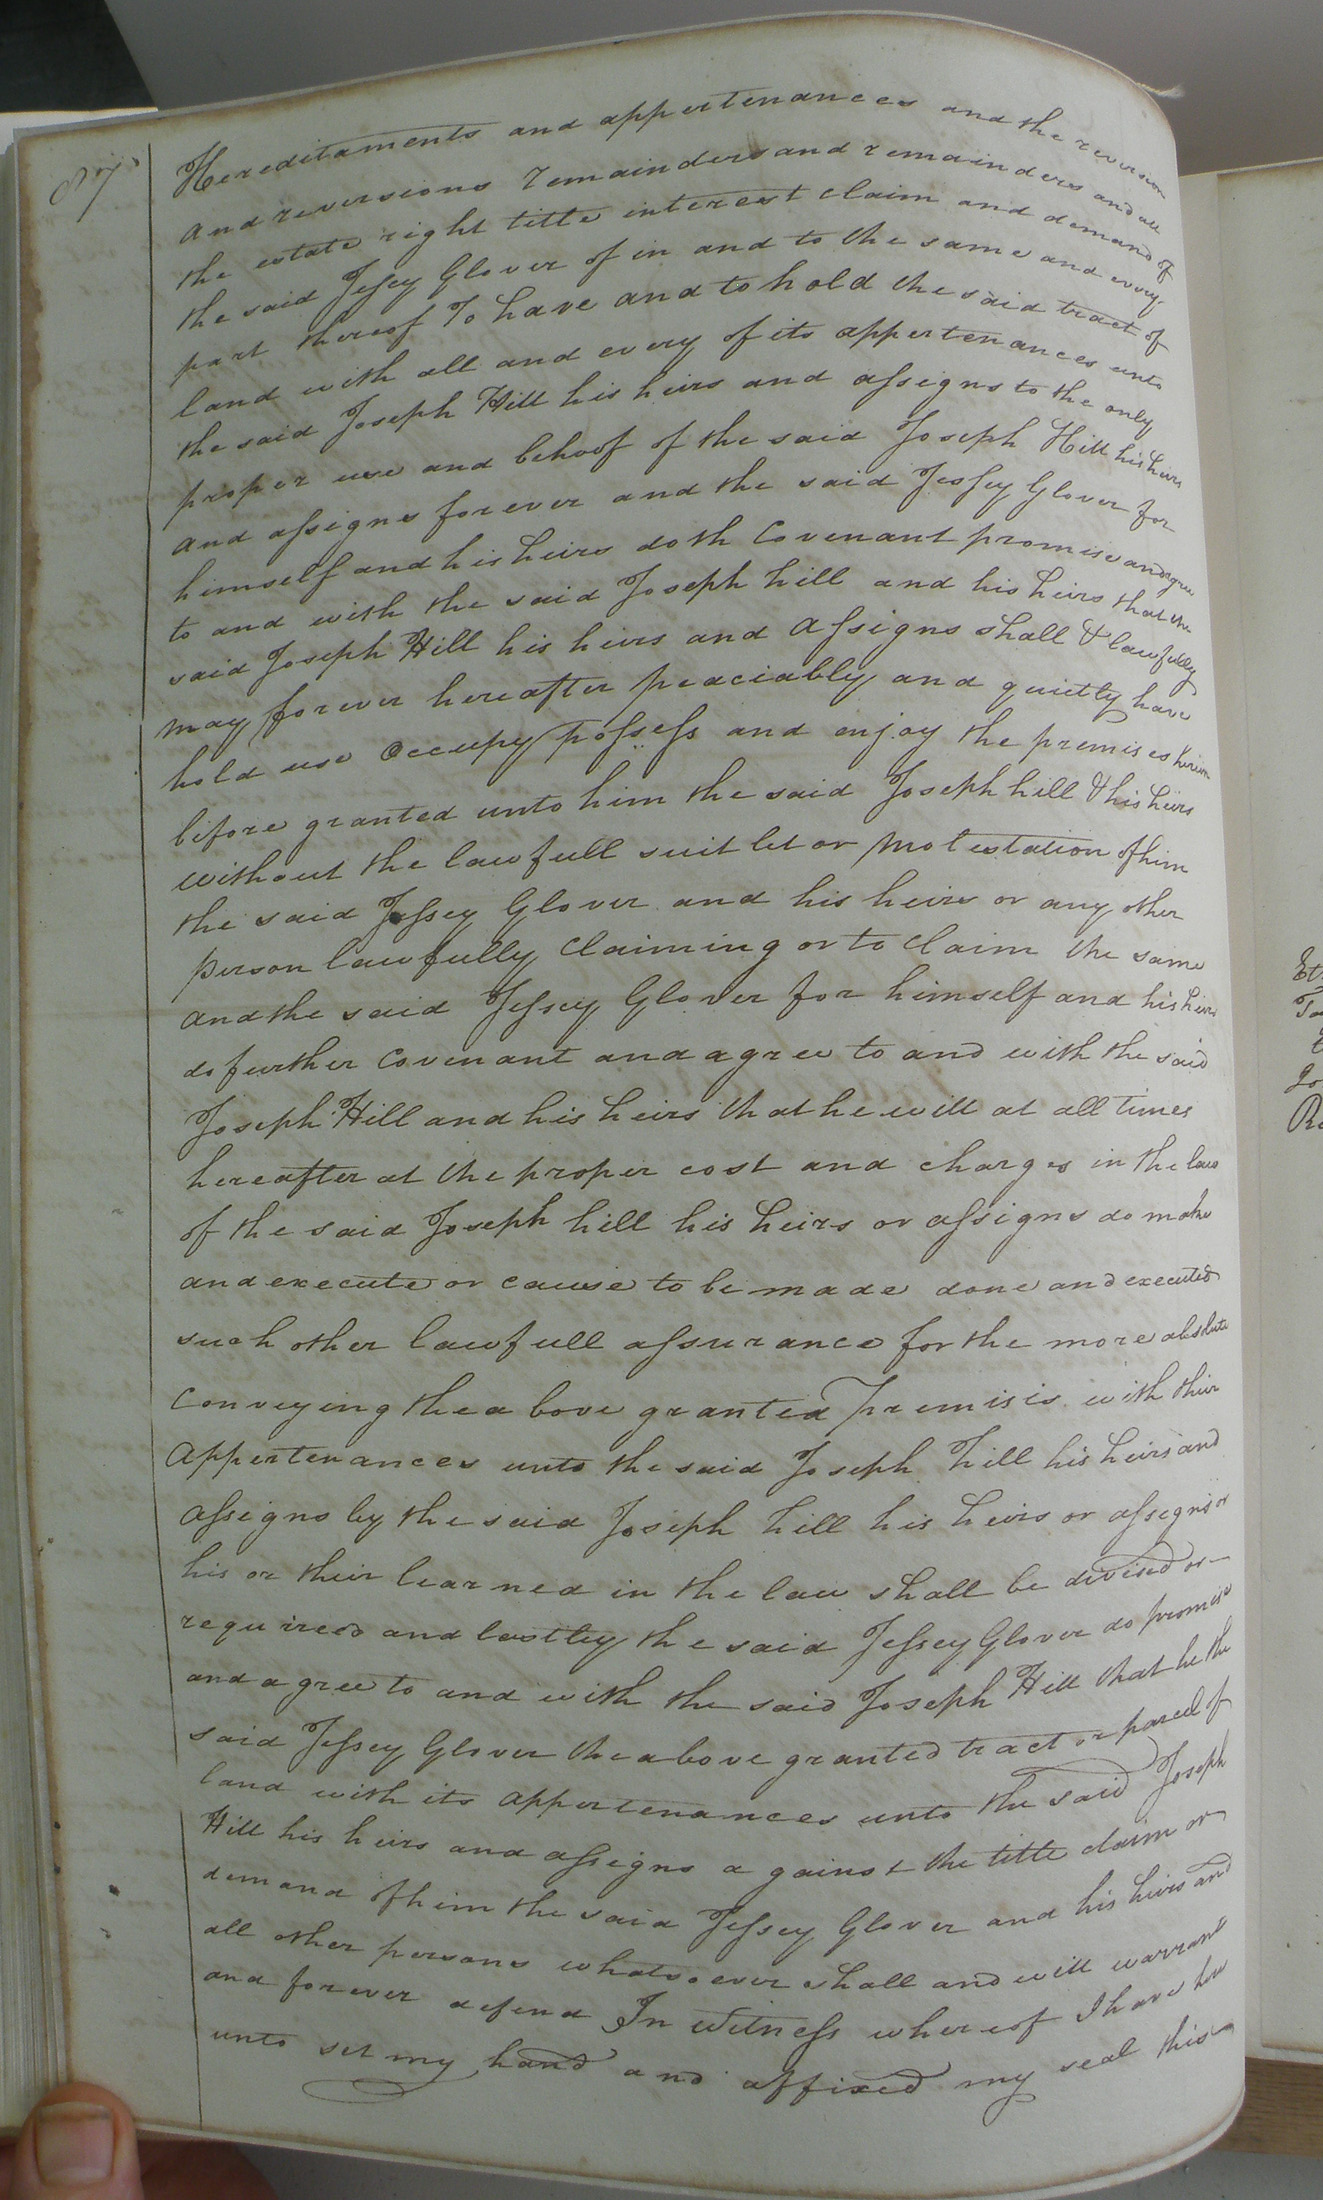 87
Hereditaments and appertenances and the reversion
and reversions remainders and remainders and all
the estate right title interest claim and demand of
the said Jessey Glover of in and to the same and every
part thereof To have and to hold the said tract of
land with all and every of its appertenances unto
the said Joseph Hill his heirs and assigns to the only
proper use and behoof of the said Joseph Hill his heirs
and assigns forever and the said Jessey Glover for
himself and his heirs doth Covenant promise and agree
to and with the said Joseph hill and his heirs that the
said Joseph Hill his heirs and assigns shall & lawfully
may forever hereafter peaciably and quietly have
hold use occupy possess and enjoy the premises herein
before granted unto him the said Joseph hill & his heirs
without the lawfull suit let or molestation of him
the said Jessey Glover and his heirs or any other
person lawfully Claiming or to Claim the same
and the said Jessey Glover for himself and his heirs
do further Covenant and agree to and with the said
Joseph Hill and his heirs that he will at all times
hereafter at the proper cost and charges in the law
of the said Joseph hill his heirs or assigns do make
and execute or cause to be made done and executed
such other lawfull assurance for the more absolute
Conveying the above granted Premisis with their
Appertenances unto the said Joseph hill his heirs and
assigns by the said Joseph hill his heirs or assigns or
his or their learned in the law shall be devised or
required and lastley the said Jessey Glover do promise
and agree to and with the said Joseph Hill that he the
said Jessey Glover the above granted tract or parcel of
land with its appertenances unto the said Joseph
Hill his heirs and assigns against the title claim or
demand of him the said Jessey Glover and his heirs and
all other persons whatsoever shall and will warrant
and forever defend In Witness whereof I have here
unto set my hand and affixed my seal this